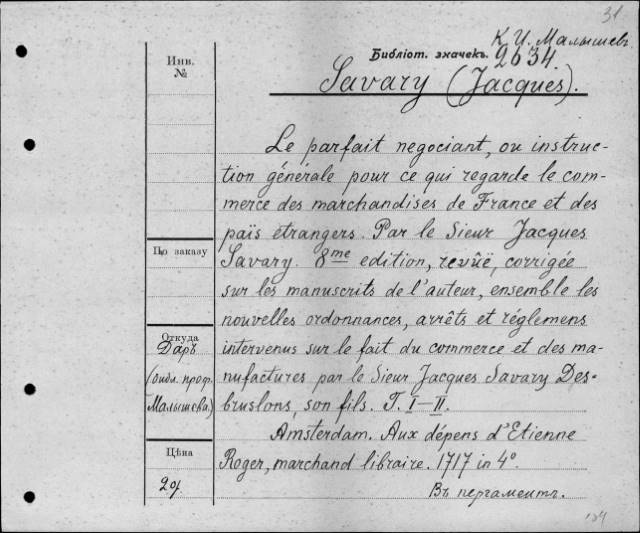 31
К. И. Малышевъ
Библіот. значекъ. 2634.
Savary (Jacques).
Инв.
№
Le parfait negociant, ou instruc-
tion générale pour ce qui regarde le com-
merce des marchandises de France et des
païs étrangers. Par le Sieur Jacques
Savary. 8me edition, revûë, corrigée
sur les manuscrits de l'auteur, ensemble les
nouvelles ordonnances, arrêts et réglemens
intervenus sur le fait du commerce et des ma-
nufactures par le Sieur Jacques Savary Des-
bruslons, son fils. T. I–II.
Amsterdam. Aux dépens d'Etienne
Roger, marchand libraire. 1717 in 4°.
Въ пергаментѣ.
По заказу
Откуда
Даръ
(библ. проф.
Малышева)
Цѣна